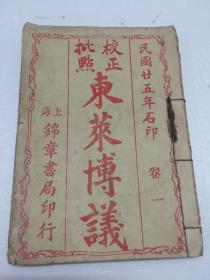 民國廿五年石印
卷一
校正
批點
東萊博議
上海
錦章書局印行